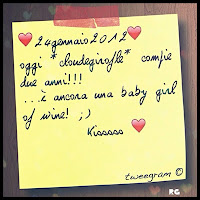 ❤24gennaio2012❤
oggi *cloudegirofle* compie
due anni!!!
...è ancora una baby girl
of wine! ;)
Kisssss ❤
tweegram ©
RG